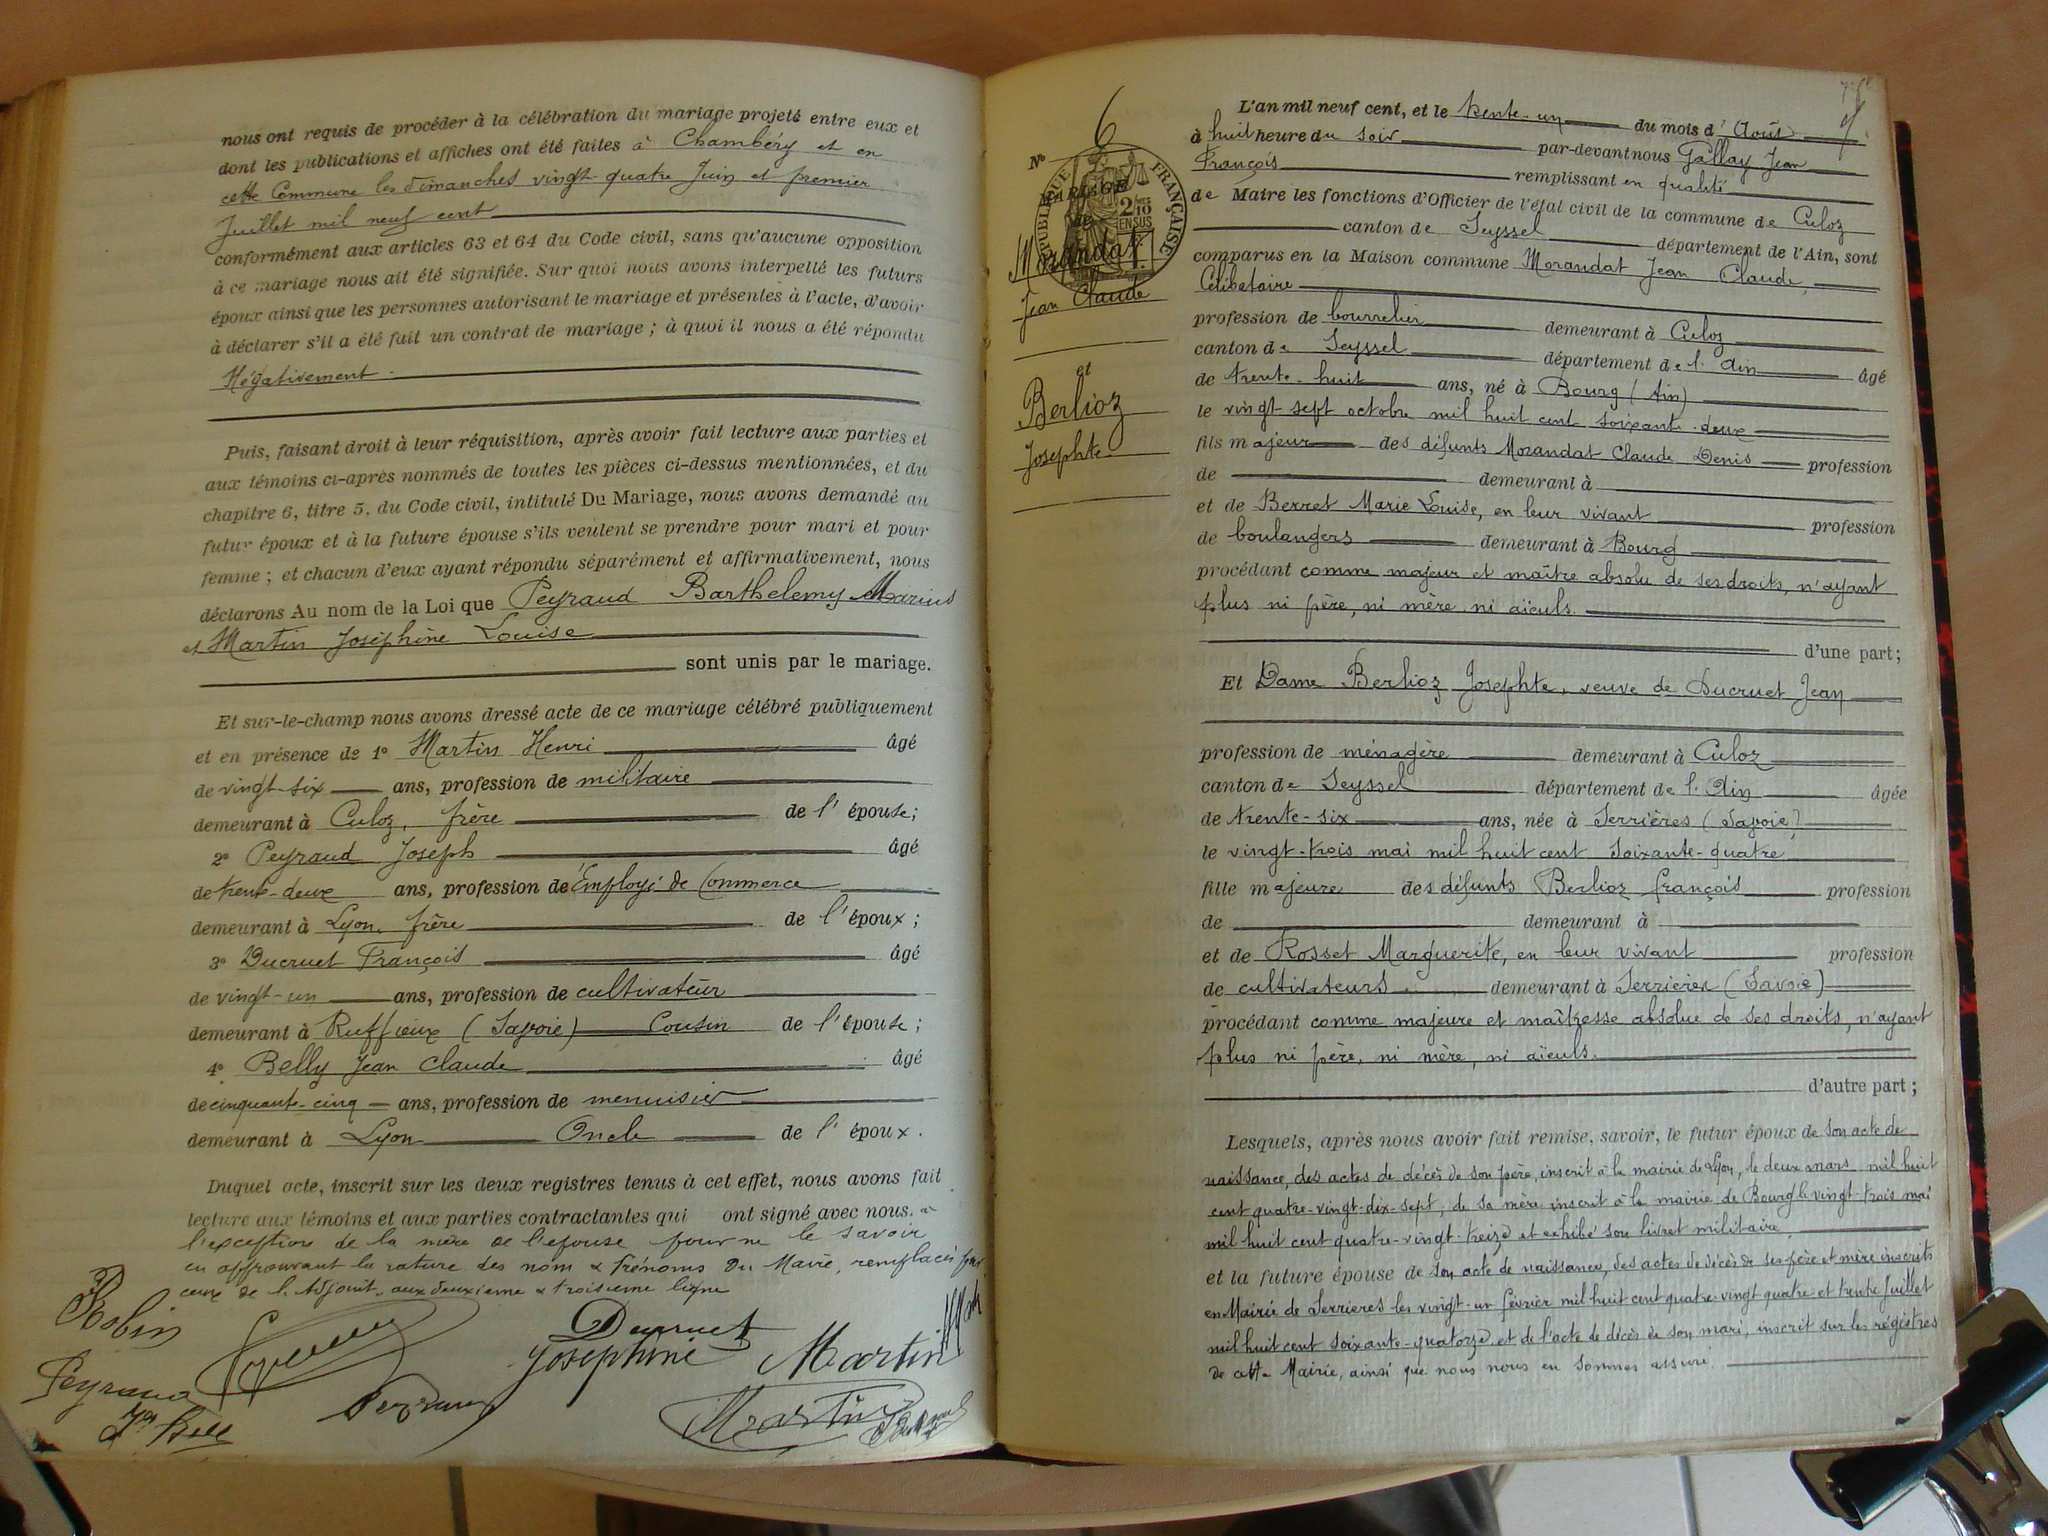 nous ont requis de procéder à la célébration du mariage projeté entre eux et
dont les publications et affiches ont été faites à Chambéry et en
cette Commune les dimanches vingt-quatre Juin et premier
Juillet mil neuf cent
conformément aux articles 63 et 64 du Code civil, sans qu'aucune opposition
à ce mariage nous ait été signifiée. Sur quoi nous avons interpellé les futurs
époux ainsi que les personnes autorisant le mariage et présentes à l'acte, d'avoir
à déclarer s'il a été fait un contrat de mariage ; à quoi il nous a été répondu
Négativement.
Puis, faisant droit à leur réquisition, après avoir fait lecture aux parties et
aux témoins ci-après nommés de toutes les pièces ci-dessus mentionnées, et du
chapitre 6, titre 5, du Code civil, intitulé Du Mariage, nous avons demandé au
futur époux et à la future épouse s'ils veulent se prendre pour mari et pour
femme ; et chacun d'eux ayant répondu séparément et affirmativement, nous
déclarons Au nom de la Loi que Peyraud Barthelemy Marius
et Martin Joséphine Louise
sont unis par le mariage.
Et sur-le-champ nous avons dressé acte de ce mariage célébré publiquement
et en présence de 1° Martin Henri âgé
de vingt-six ans, profession de militaire
demeurant à Culoz, frère de l'épouse;
2° Peyraud Joseph âgé
de trente-deux ans, profession de Employé de Commerce
demeurant à Lyon, frère de l'époux ;
3° Ducruet François âgé
de vingt-un ans, profession de cultivateur
demeurant à Ruffieux (Savoie) Cousin de l'épouse ;
4° Belly Jean Claude âgé
de cinquante-cinq ans, profession de menuisier
demeurant à Lyon Oncle de l'époux.
Duquel acte, inscrit sur les deux registres tenus à cet effet, nous avons fait
lecture aux témoins et aux parties contractantes qui ont signé avec nous. à
l'exception de la mère de l'épouse pour ne le savoir
en approuvant la rature des nom & prénoms du Maire, remplacés par
ceux de l'Adjoint, aux deuxième & troisième ligne
Robin
Ducruet
Peyraud Joséphine Martin
Peyraud Martin
N° 6
MARIAGE
de
RÉPUBLIQUE FRANÇAISE
2/10 EN SUS
Morandat
Jean Claude
et
Berlioz
Josephte
L'an mil neuf cent, et le trente-un du mois d'Août
à huit heure du soir par-devant nous Gallay Jean
François remplissant en qualité
de Maire les fonctions d'Officier de l'état civil de la commune de Culoz
canton de Seyssel département de l'Ain, sont
comparus en la Maison commune Morandat Jean Claude,
Célibataire
profession de bourrelier demeurant à Culoz
canton de Seyssel département de l'Ain âgé
de trente-huit ans, né à Bourg (Ain)
le vingt-sept octobre mil huit cent soixante-deux
fils majeur des défunts Morandat Claude Denis profession
de demeurant à
et de Berret Marie Louise, en leur vivant profession
de boulangers demeurant à Bourg
procédant comme majeur et maître absolu de ses droits, n'ayant
plus ni père, ni mère ni aïeuls.
d'une part;
Et Dame Berlioz Josephte, veuve de Ducruet Jean
profession de ménagère demeurant à Culoz
canton de Seyssel département de l'Ain âgée
de trente-six ans, née à Serrières (Savoie)
le vingt-trois mai mil huit cent soixante-quatre
fille majeure des défunts Berlioz François profession
de demeurant à
et de Rosset Marguerite, en leur vivant profession
de cultivateurs demeurant à Serrières (Savoie)
procédant comme majeure et maîtresse absolue de ses droits, n'ayant
plus ni père, ni mère, ni aïeuls.
d'autre part ;
Lesquels, après nous avoir fait remise, savoir, le futur époux de son acte de
naissance, des actes de décès de son père, inscrit à la mairie de Lyon, le deux mars mil huit
cent quatre-vingt-dix-sept, de sa mère inscrit à la mairie de Bourg le vingt-trois mai
mil huit cent quatre-vingt-treize et exhibé son livret militaire
et la future épouse de son acte de naissance, des actes de décès de ses père et mère inscrits
en Mairie de Serrières les vingt-un février mil huit cent quatre-vingt quatre et trente Juillet
mil huit cent soixante-quatorze et de l'acte de décès de son mari, inscrit sur les régistres
de cette Mairie, ainsi que nous nous en sommes assuré.